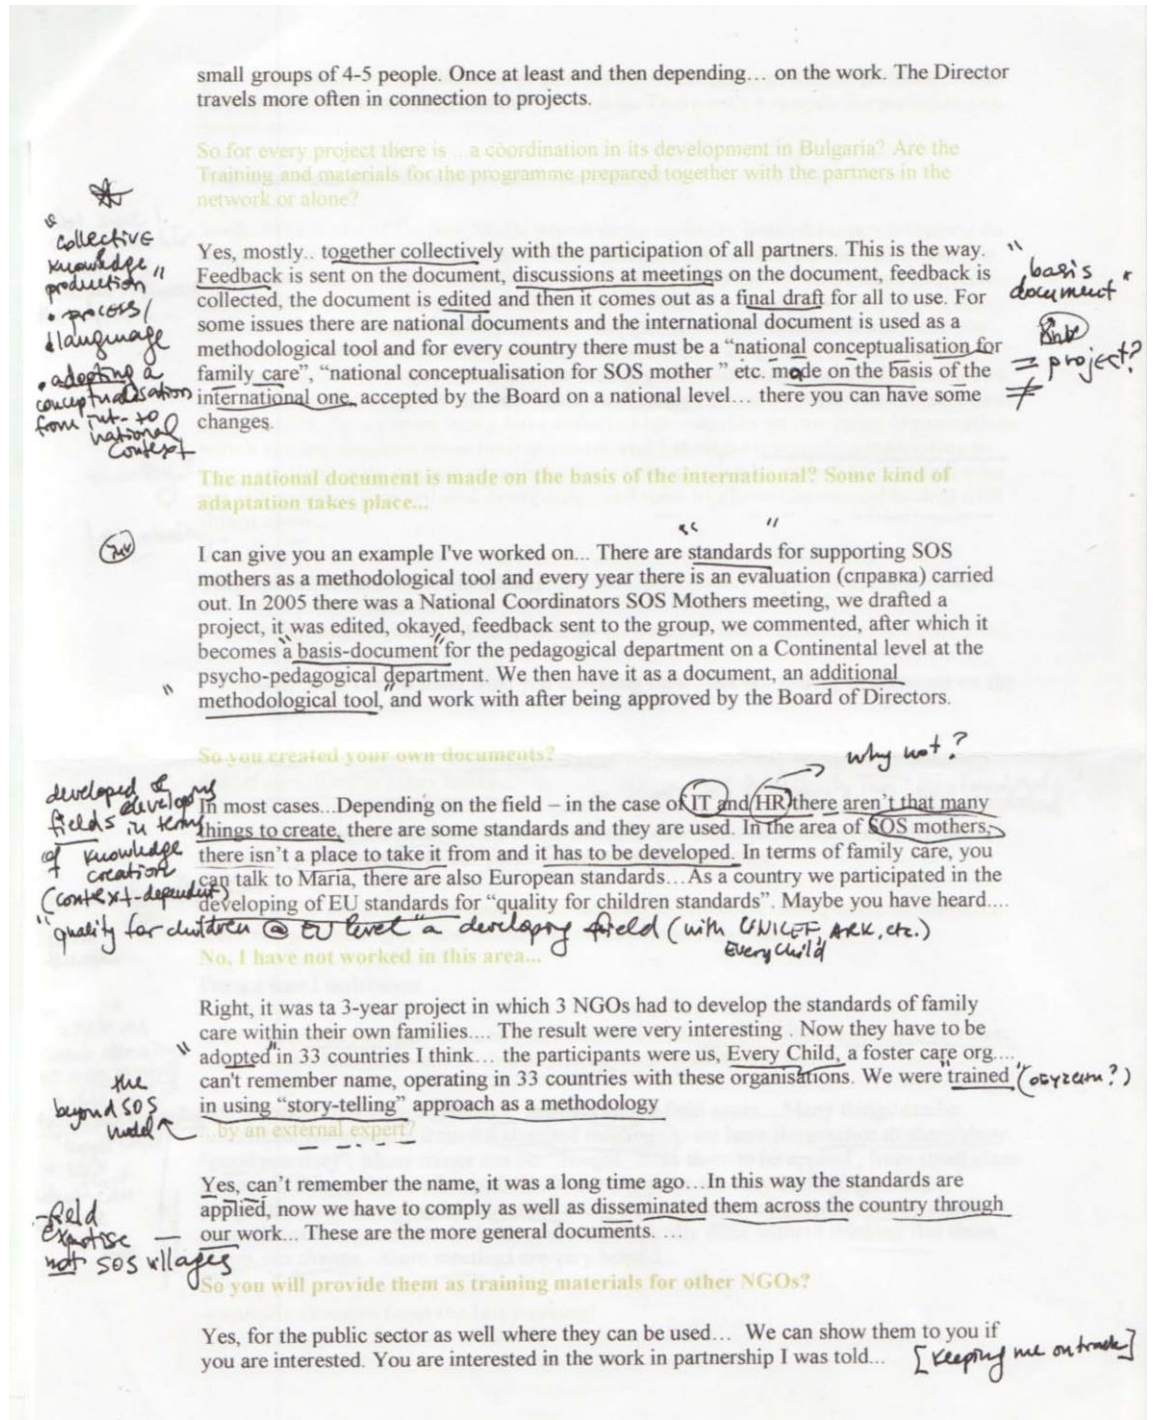 small groups of 4-5 people. Once at least and then depending... on the work. The Director
travels more often in connection to projects.
So for every project there is ...a coordination in its development in Bulgaria? Are the
Training and materials for the programme prepared together with the partners in the
network or alone?
"collective
knowledge
production"
• process/
language
• adopting a
conceptualisation
from int- to
national
context
Yes, mostly.. together collectively with the participation of all partners. This is the way.
Feedback is sent on the document, discussions at meetings on the document, feedback is
collected, the document is edited and then it comes out as a final draft for all to use. For
some issues there are national documents and the international document is used as a
methodological tool and for every country there must be a “national conceptualisation for
family care”, “national conceptualisation for SOS mother ” etc. made on the basis of the
international one, accepted by the Board on a national level... there you can have some
changes.
"basis
document"
= project?
≠
The national document is made on the basis of the international? Some kind of
adaptation takes place...
I can give you an example I've worked on... There are "standards" for supporting SOS
mothers as a methodological tool and every year there is an evaluation (справка) carried
out. In 2005 there was a National Coordinators SOS Mothers meeting, we drafted a
project, it was edited, okayed, feedback sent to the group, we commented, after which it
becomes a "basis-document" for the pedagogical department on a Continental level at the
psycho-pedagogical department. We then have it as a document, an additional
"methodological tool," and work with after being approved by the Board of Directors.
So you created your own documents?
why not?
developed &
developing
fields in terms
of knowledge
creation
(context-dependent)
In most cases...Depending on the field – in the case of IT and HR there aren’t that many
things to create, there are some standards and they are used. In the area of SOS mothers,
there isn’t a place to take it from and it has to be developed. In terms of family care, you
can talk to Maria, there are also European standards...As a country we participated in the
developing of EU standards for “quality for children standards”. Maybe you have heard....
"quality for children @ EU level" a developing field (with UNICEF, ARK, etc.)
EveryChild
No, I have not worked in this area...
Right, it was ta 3-year project in which 3 NGOs had to develop the standards of family
care within their own families.... The result were very interesting . Now they have to be
"adopted" in 33 countries I think... the participants were us, Every Child, a foster care org....
can't remember name, operating in 33 countries with these organisations. We were "trained"
in using “story-telling” approach as a methodology
the
beyond SOS
model
...by an external expert?
Yes, can’t remember the name, it was a long time ago...In this way the standards are
applied, now we have to comply as well as disseminated them across the country through
our work... These are the more general documents. ...
- field
expertise —
not SOS villages
So you will provide them as training materials for other NGOs?
Yes, for the public sector as well where they can be used... We can show them to you if
you are interested. You are interested in the work in partnership I was told...
[keeping me on track]